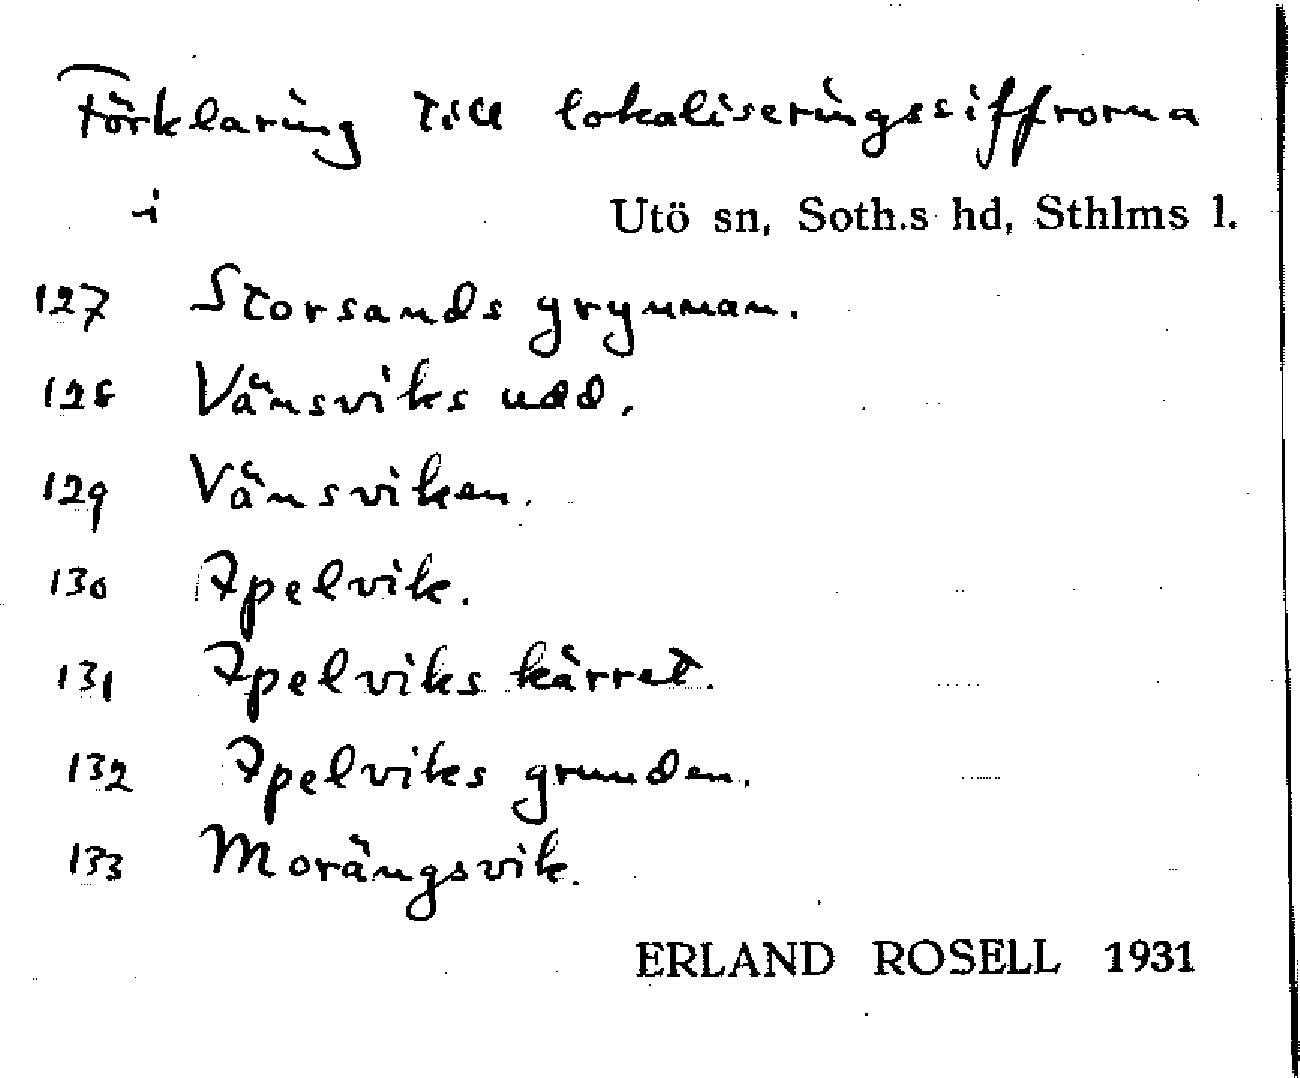 Förklaring till lokaliseringssiffrorna
i Utö sn, Soth.s hd, Sthlms l.
127 Storsands grynnan.
128 Vänsviks udd.
129 Vänsviken.
130 Apelvik.
131 Apelviks kärret.
132 Apelviks grunden.
133 Morängsvik.
ERLAND ROSELL 1931